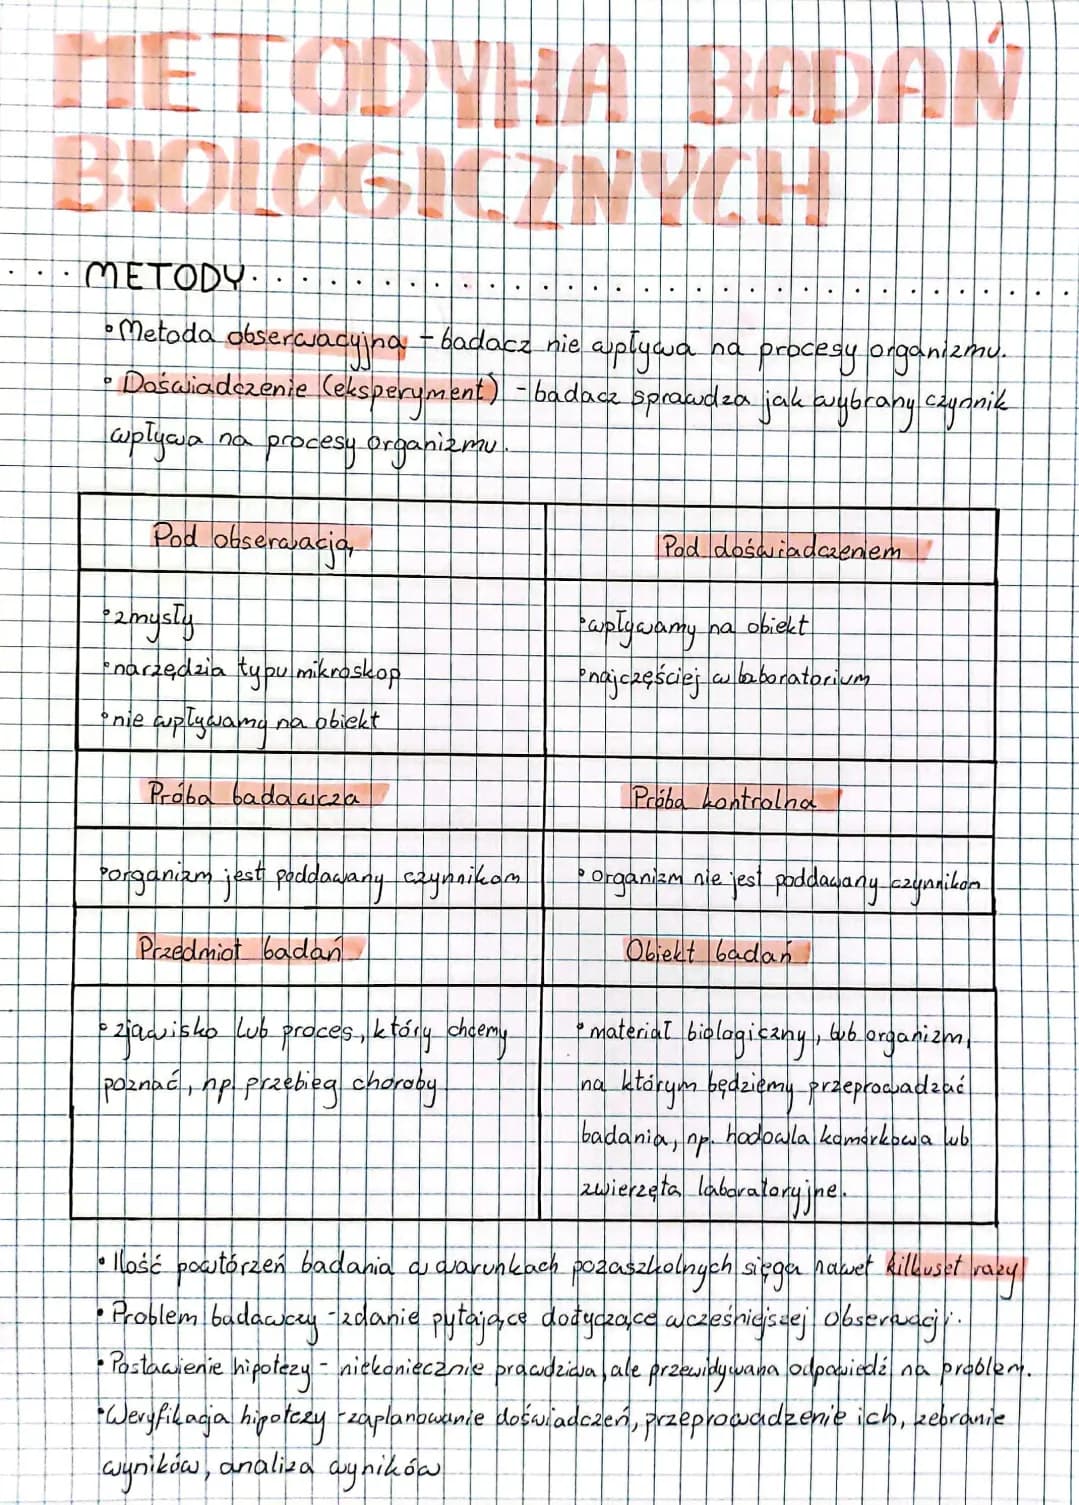 METODYKA BADAŃ
BIOLOGICZNYCH
METODY
• Metoda obserwacyjna - badacz nie wpływa na procesy organizmu.
• Doświadczenie (eksperyment) - badacz sprawdza jak wybrany czynnik
wpływa na procesy organizmu.
Pod obserwacją
Pod doświadczeniem
• zmysły
• narzędzia typu mikroskop
• nie wpływamy na obiekt
• wpływamy na obiekt
• najczęściej w laboratorium
Próba badawcza
Próba kontrolna
• organizm jest poddawany czynnikom
• organizm nie jest poddawany czynnikom
Przedmiot badań
Obiekt badań
• zjawisko lub proces, który chcemy
poznać, np. przebieg choroby
• materiał biologiczny, lub organizm,
na którym będziemy przeprowadzać
badania, np. hodowla komórkowa lub
zwierzęta laboratoryjne.
• Ilość powtórzeń badania w warunkach pozaszkolnych sięga nawet kilkuset razy
• Problem badawczy - zdanie pytające dotyczące wcześniejszej obserwacji.
• Postawienie hipotezy - niekoniecznie prawdziwa, ale przewidywana odpowiedź na problem.
• Weryfikacja hipotezy - zaplanowanie doświadczeń, przeprowadzenie ich, zebranie
wyników, analiza wyników